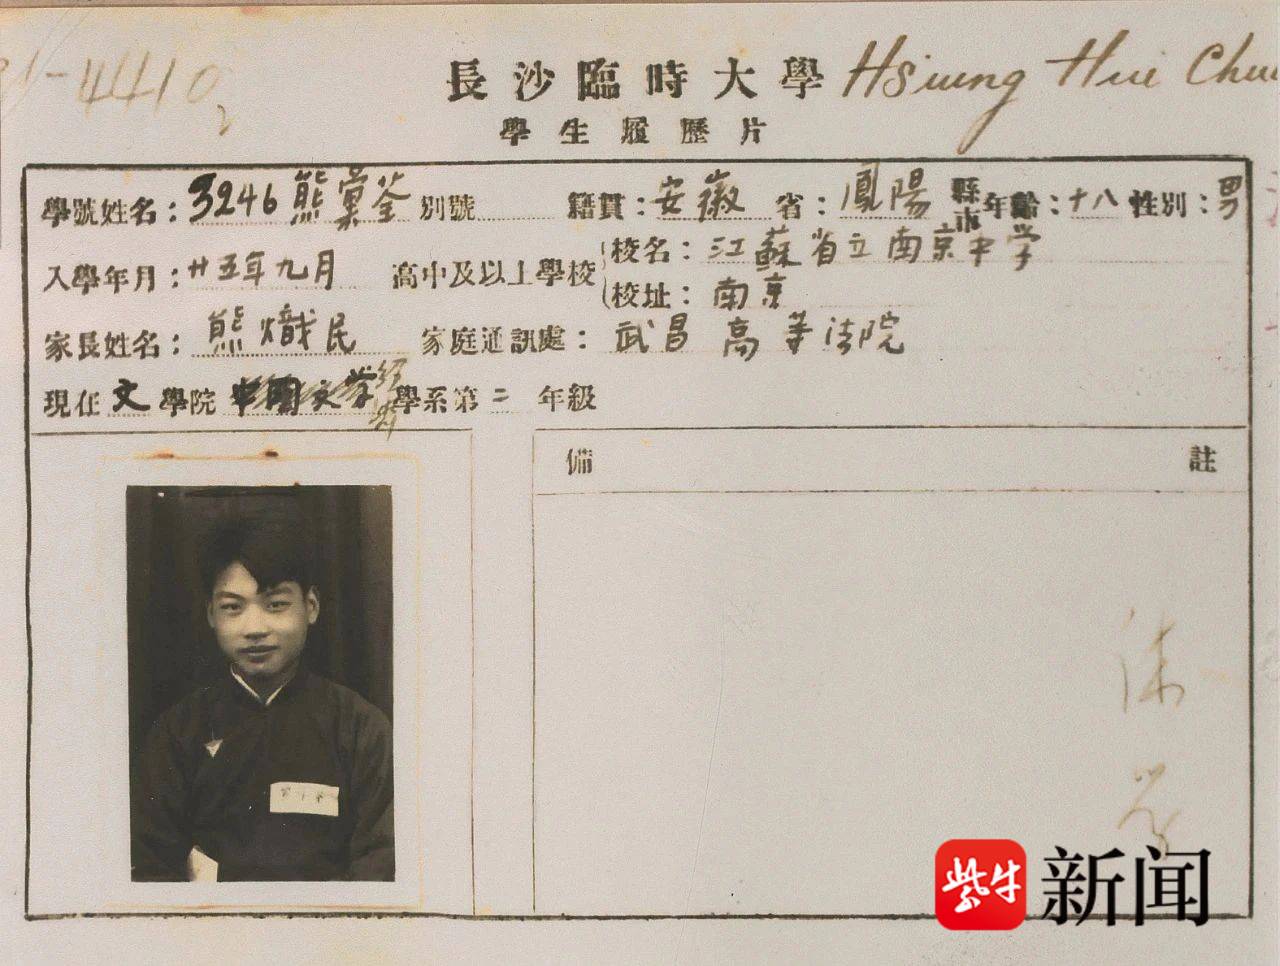 4410
2
長沙臨時大學 Hsiung Hui
學生履歷片
學號姓名：3246 熊彙荃 別號 籍貫：安徽省：鳳陽縣市 年齡：十八 性別：男
入學年月：廿五年九月 高中及以上學校 校名：江蘇省立南京中学
校址：南京
家長姓名：熊熾民 家庭通訊處：武昌高等法院
現在文學院中國文学學系第二年級
備註
紫牛新闻